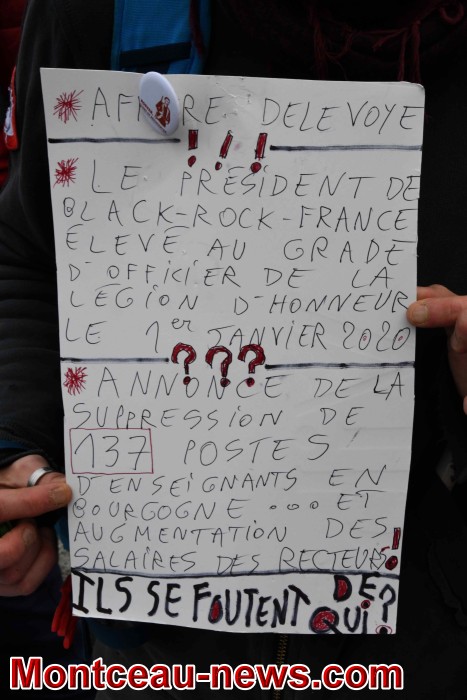 * AFF RE DELEVOYE
! ! !
* LE PRÉSIDENT DE
BLACK-ROCK-FRANCE
ÉLEVÉ AU GRADE
D'OFFICIER DE LA
LÉGION D'HONNEUR
LE 1er JANVIER 2020
? ? ?
* ANNONCE DE LA
SUPPRESSION DE
137 POSTES
D'ENSEIGNANTS EN
BOURGOGNE ... ET
AUGMENTATION DES
SALAIRES DES RECTEURS!
ILS SE FOUTENT DE
QUI?
Montceau-news.com